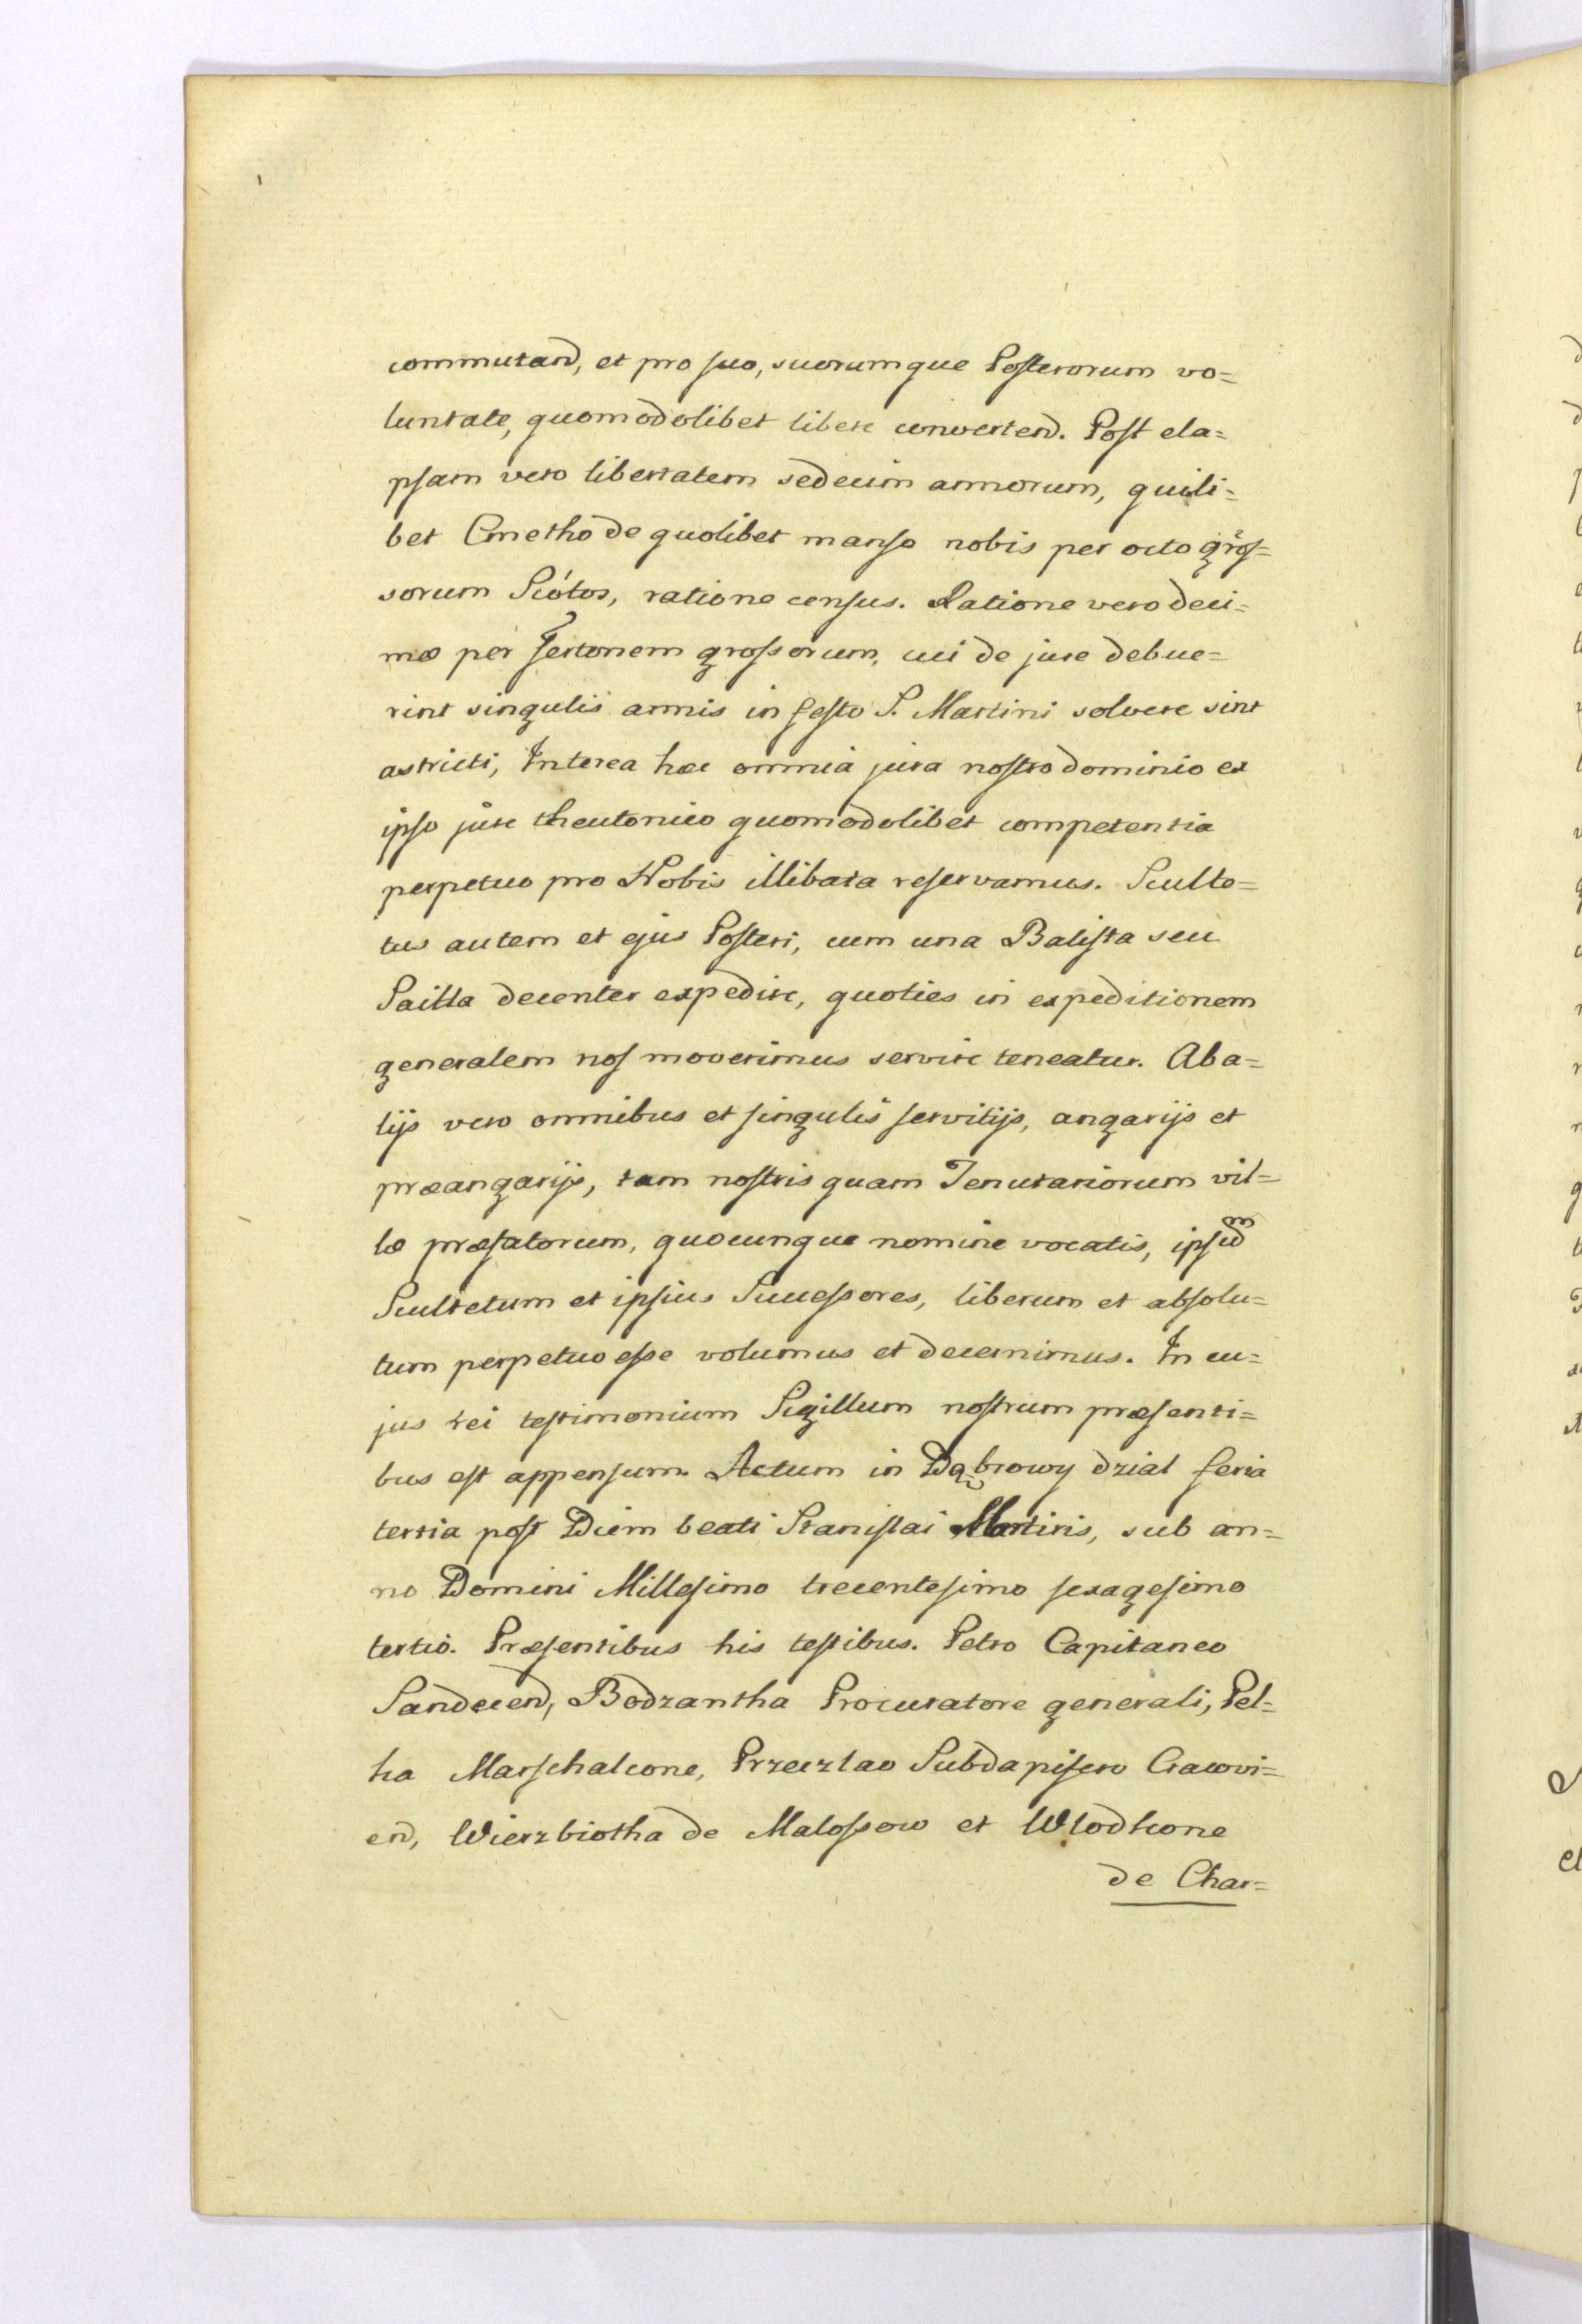 commutand, et pro suo, suorumque Posterorum vo=
luntate, quomodolibet libere convertend. Post ela=
psam vero libertatem sedecim annorum, quili=
bet Cmetho de quolibet manso nobis per octo gros=
sorum Scótos, ratione census. Ratione vero deci=
mæ per fertonem grossorum, cui de jure debue=
rint singulis annis in festo S. Martini solvere sint
astricti, Interea hæc omnia jura nostro dominio ex
ipso jure theutonico quomodolibet competentia
perpetuo pro Nobis illibata reservamus. Sculte=
tus autem et ejus Posteri, cum una Balista seu
Saitta decenter expedire, quoties in expeditionem
generalem nos moverimus servire teneatur. Ab a=
lijs vero omnibus et singulis servitijs, angarijs et
præangarijs, tam nostris quam Tenutariorum vil=
læ præfatorum, quocunque nomine vocatis, ipsum
Scultetum et ipsius Successores, liberum et absolu=
tum perpetuo esse volumus et decernimus. In cu=
jus rei testimonium Sigillum nostrum præsenti=
bus est appensum. Actum in Dąbrowy dzial feria
tertia post Diem beati Stanislai Martiris, sub an=
no Domini Millesimo trecentesimo sexagesimo
tertio. Præsentibus his testibus. Petro Capitaneo
Sandecend, Bodzantha Procuratore generali, Pel=
ka Marschalcone, Przeczlao Subdapifero Cracovi=
end, Wierzbiotha de Malossow et Wlodkone
de Char=